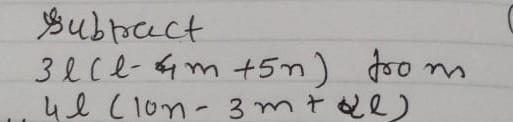 Subtract
3l(l-4m+5n) from
4l(10n-3m+2l)